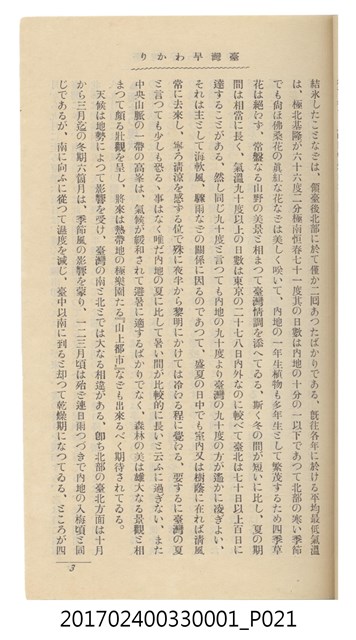 臺灣早わかり
結氷したことなどは、領臺後北部に於て僅か二囘あつたばかりである。旣往各年に於ける平均最低氣溫
は、極北基隆が六十六度二分極南恒春七十一度其の日數は內地の十分の一以下であつて北部の寒い季節
でも尙ほ佛桑花の眞紅な花などは美しく咲いて、內地の一年生植物も多年生として繁茂するため四季草
花は絕わず、常盤なる山野の美景と相まつて臺灣情調を添へてゐる。斯く冬の間が短いに比し、夏の期
間は相當に長く、氣溫九十度以上の日數は東京の二十七八日內外なのに較べて臺北は七十日以上百日に
達することがある。然し同じ九十度と言つても內地の九十度より臺灣の九十度の方が遙かに凌ぎよい、
それは主として海軟風、驟雨などの關係に因るのであつて、盛夏の日中でも室內又は樹蔭に在れば淸風
常に去來し、寧ろ淸涼を感ずる位で殊に夜半から黎明にかけては冷わる程に覺わる。要するに臺灣の夏
と言つても少しも恐るゝ事はなく唯だ內地の夏に比して暑い間が比較的に長いと云ふに過ぎない、また
中央山脈の一帶の高峯は、氣候が緩和されて避暑に適するばかりでなく、森林の美は雄大なる景觀と相
まつて頗る壯觀を呈し、將來は熱帶地の極樂園たる『山上都市』なども出來るべく期待されてゐる。
天候は地勢によつて影響を受け、臺灣の南と北とでは大なる相違がある、卽ち北部の臺北方面は十月
から三月迄の冬期六個月は、季節風の影響を蒙り、一二三月頃は殆ど連日雨つづきで內地の入梅頃と同
じであるが、南に向ふに從つて濕度を減じ、臺中以南に到ると却つて乾燥期になつてゐる、ところが四
3
201702400330001_P021